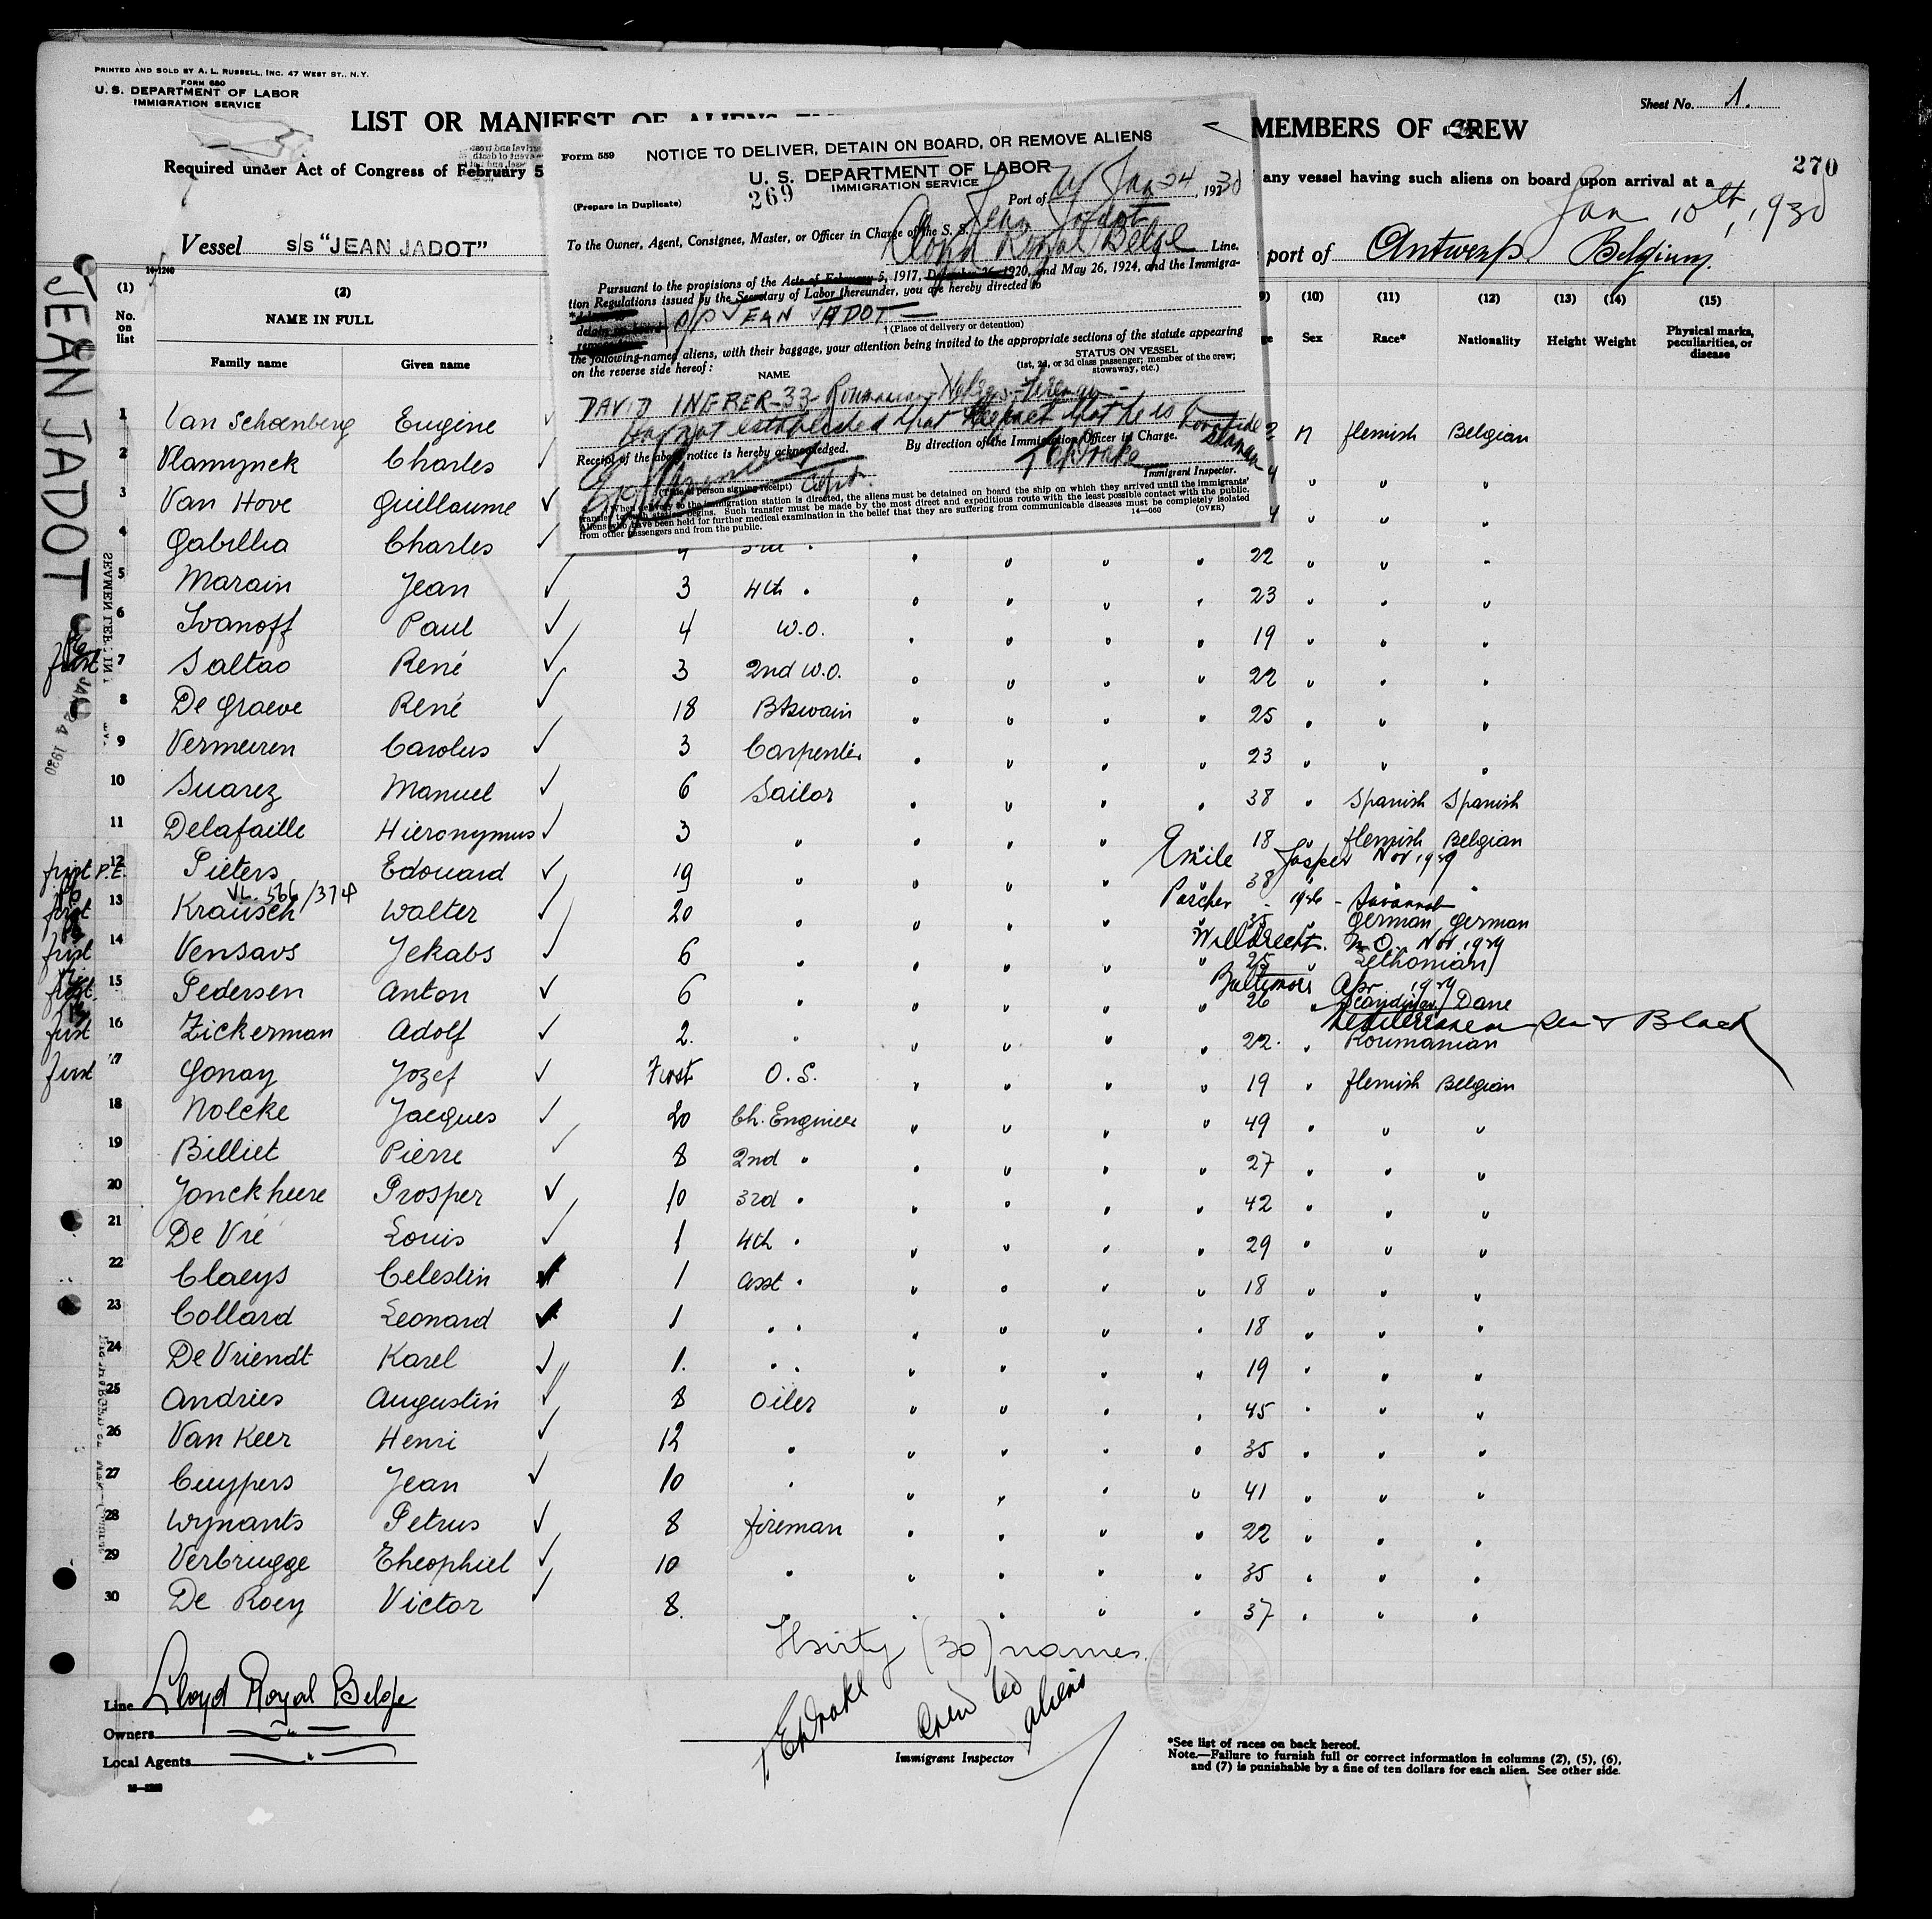 PRINTED AND SOLD BY A. L. RUSSELL, INC. 47 WEST ST., N.Y.
FORM 680
U. S. DEPARTMENT OF LABOR
IMMIGRATION SERVICE
Sheet No. 1.
LIST OR MANIFEST OF ALIENS
MEMBERS OF CREW
270
Required under Act of Congress of February 5
any vessel having such aliens on board upon arrival at a
Jan 10th, 1930
Vessel s/s "JEAN JADOT"
port of Antwerp Belgium.
Form 559
NOTICE TO DELIVER, DETAIN ON BOARD, OR REMOVE ALIENS
U. S. DEPARTMENT OF LABOR
IMMIGRATION SERVICE
(Prepare in Duplicate)
269
Port of NY Jan 24, 1930
Jean Jadot
To the Owner, Agent, Consignee, Master, or Officer in Charge of the S. S.
Lloyd Royal Belge Line.
Pursuant to the provisions of the Acts of February 5, 1917, December 26, 1920, and May 26, 1924, and the Immigra-
tion Regulations issued by the Secretary of Labor thereunder, you are hereby directed to
detain on board
S/S JEAN JADOT
† (Place of delivery or detention)
the following-named aliens, with their baggage, your attention being invited to the appropriate sections of the statute appearing
on the reverse side hereof:
NAME
STATUS ON VESSEL
(1st, 2d, or 3d class passenger; member of the crew; stowaway, etc.)
DAVID INGBER-33- Roumanian Fireman
has not established that he is bonafide seaman
Receipt of the above notice is hereby acknowledged.
By direction of the Immigration Officer in Charge.
Drake
Immigrant Inspector.
(Title of person signing receipt) Capt.
When delivery to the immigration station is directed, the aliens must be detained on board the ship on which they arrived until the immigrants'
transfer to such station begins. Such transfer must be made by the most direct and expeditious route with the least possible contact with the public.
Aliens who have been held for further medical examination in the belief that they are suffering from communicable diseases must be completely isolated
from other passengers and from the public.
14—660 (OVER)
JEAN JADOT
JAN 24 1930
14-1240
(1) (2) (10) (11) (12) (13) (14) (15)
No. on list
NAME IN FULL
Family name Given name
Sex Race* Nationality Height Weight Physical marks, peculiarities, or disease
1 Van Schoenberg Eugène M flemish Belgian
2 Vlamynck Charles " " "
3 Van Hove Guillaume " " "
4 Gabillia Charles 22 " " "
5 Marain Jean 3 4th " 23 " " "
6 Ivanoff Paul 4 W.O. 19 " " "
first 7 Saltao René 3 2nd W.O. 22 " " "
8 De Graeve René 18 Btswain 25 " " "
9 Vermeiren Carolus 3 Carpenter 23 " " "
10 Suarez Manuel 6 Sailor 38 " Spanish Spanish
11 Delafaille Hieronymus 3 " 18 " flemish Belgian
Emile Jasper Nov 1929
first P.E. 12 Pieters Edouard 19 " 38 " "
VL. 566/374
first 13 Krausch Walter 20 " 35 German German
first 14 Vensavs Jekabs 6 " 25 "
Baltimore Apr 1929
first 15 Pedersen Anton 6 " 26 " Dane
first 16 Zickerman Adolf 2. " 22. " Roumanian
first 17 Gonay Jozef First O.S. 19 " flemish Belgian
18 Nolcke Jacques 20 Ch. Engineer 49 " " "
19 Billiet Pierre 8 2nd " 27 " " "
20 Jonckheere Prosper 10 3rd " 42 " " "
21 De Vré Louis 1 4th " 29 " " "
22 Claeys Celestin 1 Asst " 18 " " "
23 Collard Leonard 1 " " 18 " " "
24 De Vriendt Karel 1. " " 19 " " "
25 Andries Augustin 8 Oiler 45 " " "
26 Van Keer Henri 12 " 35 " " "
27 Cuypers Jean 10 " 41 " " "
28 Wynants Petrus 8 fireman 22 " " "
29 Verbrugge Theophiel 10 " 35 " " "
30 De Roey Victor 8. " 37 " " "
Thirty (30) names.
Line Lloyd Royal Belge
Owners
Local Agents
Drake
aliens
Immigrant Inspector
*See list of races on back hereof.
Note.—Failure to furnish full or correct information in columns (2), (5), (6),
and (7) is punishable by a fine of ten dollars for each alien. See other side.